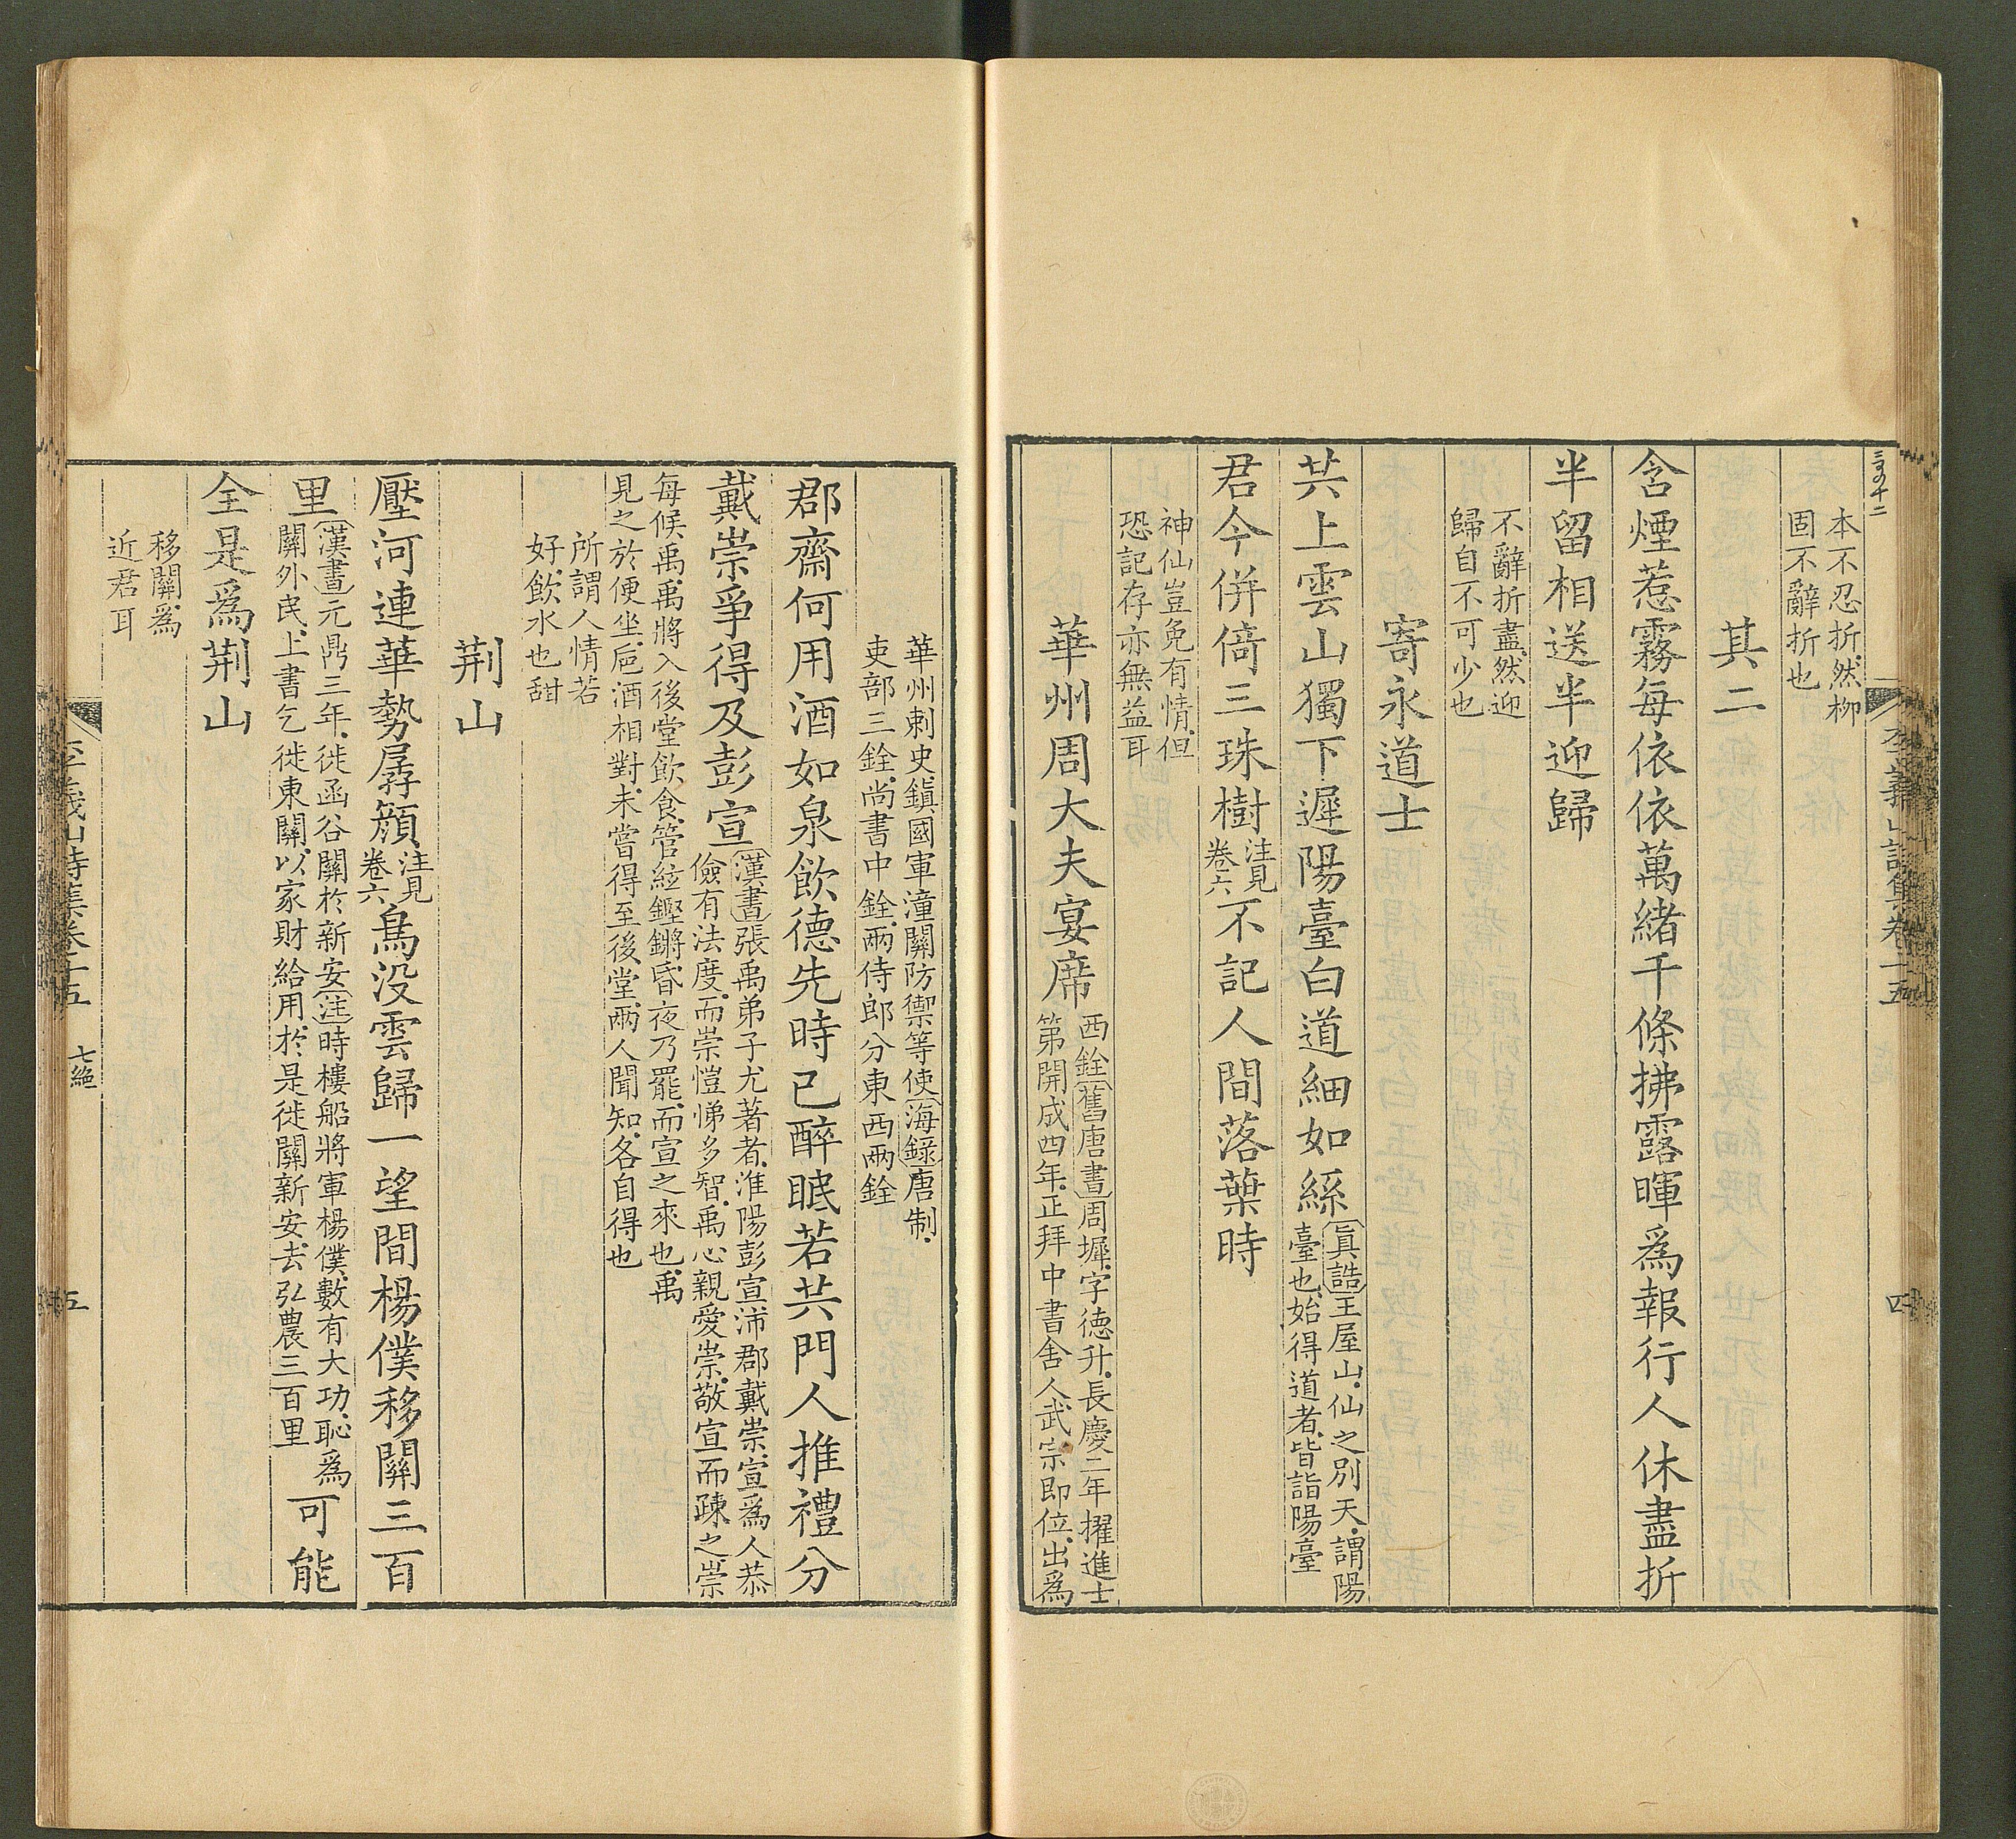 本不忍折然柳
固不辭折也
其二
含煙惹霧每依依萬緒千條拂露暉爲報行人休盡折
半留相送半迎歸
不辭折盡然迎
歸自不可少也
寄永道士
共上雲山獨下遲陽臺白道細如絲
眞誥王屋山仙之別天謂陽
臺也始得道者皆詣陽臺
君今併倚三珠樹
注見
卷六
不記人間落葉時
神仙豈免有情但
恐記存亦無益耳
華州周大夫宴席
西銓舊唐書周墀字德升長慶二年擢進士
第開成四年正拜中書舍人武宗即位出爲
華州刺史鎭國軍潼關防禦等使海錄唐制
吏部三銓尚書中銓兩侍郎分東西兩銓
郡齋何用酒如泉飲德先時已醉眠若共門人推禮分
戴崇爭得及彭宣
漢書張禹弟子尤著者淮陽彭宣沛郡戴崇宣爲人恭
儉有法度而崇愷悌多智禹心親愛崇敬宣而疎之崇
每候禹禹將入後堂飲食管絃鏗鏘昏夜乃罷而宣之來也禹
見之於便坐巵酒相對未嘗得至後堂兩人聞知各自得也
所謂人情若
好飲水也甜
荆山
壓河連華勢孱顏
注見
卷六
鳥没雲歸一望間楊僕移關三百
里
漢書元鼎三年徙函谷關於新安注時樓船將軍楊僕數有大功恥爲
關外民上書乞徙東關以家財給用於是徙關新安去弘農三百里
可能
全是爲荆山
移關爲
近君耳
李義山詩集卷十五 七絕 五